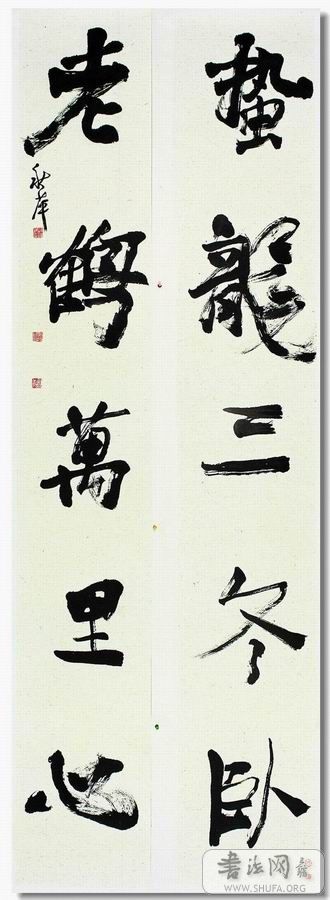 蟄龍三冬卧
老鶴萬里心
書法网
WWW.SHUFA.ORG